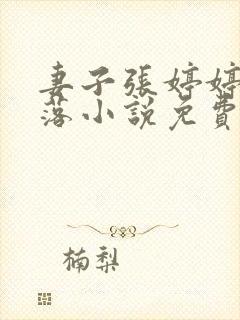 妻子張婷婷
落小說免費
楠梨